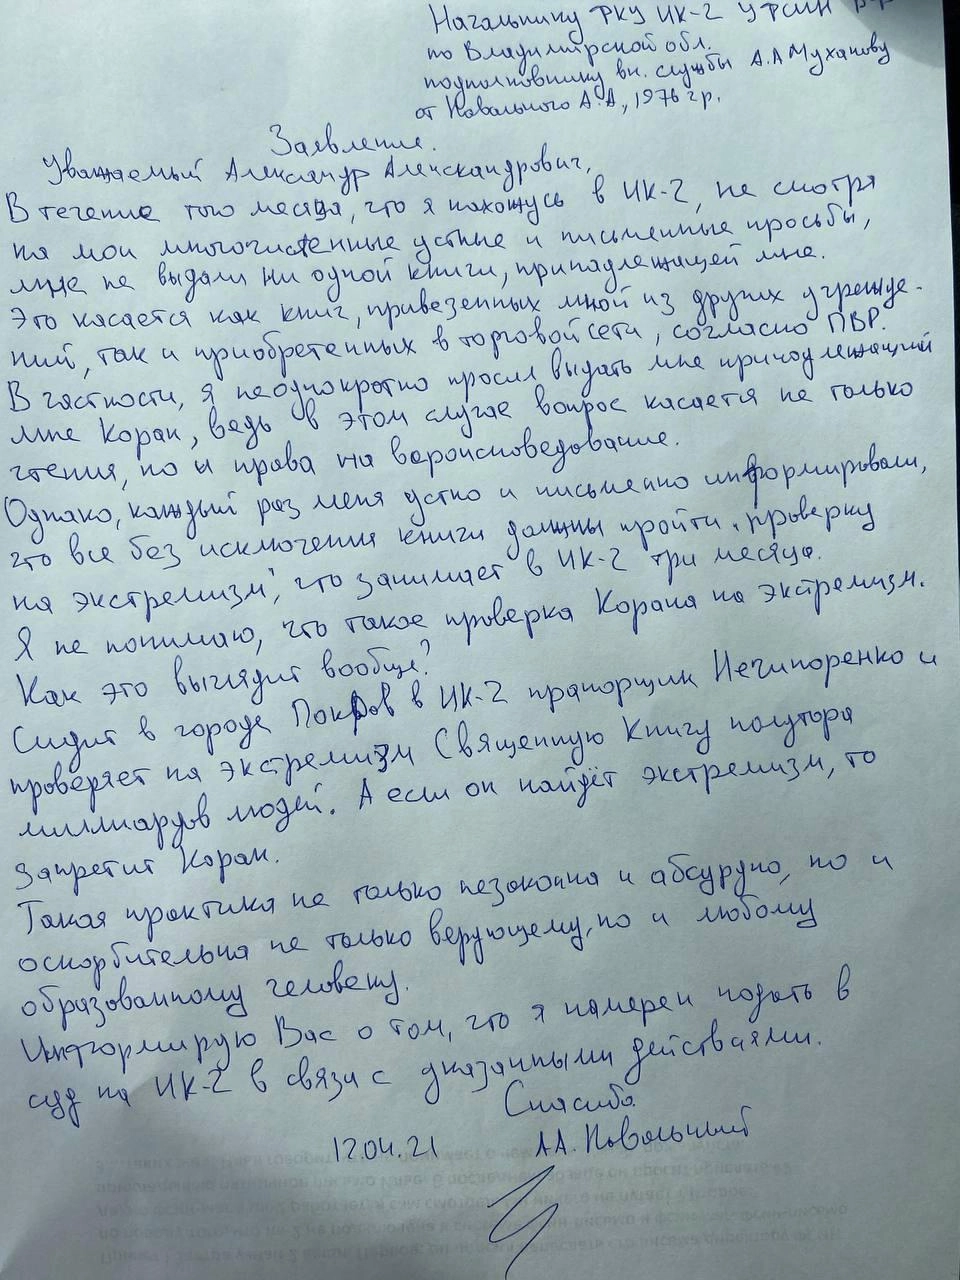 Начальнику ФКУ ИК-2 УФСИН
по Владимирской обл.
подполковнику вн. службы А.А Муханову
от Навального А.А, 1976 г р.
Заявление.
Уважаемый Александр Александрович,
В течение того месяца, что я нахожусь в ИК-2, не смотря
на мои многочисленные устные и письменные просьбы,
мне не выдали ни одной книги, принадлежащей мне.
Это касается как книг, привезенных мной из других учрежде-
ний, так и приобретенных в торговой сети, согласно ПВР.
В частности, я неоднократно просил выдать мне принадлежащий
мне Коран, ведь в этом случае вопрос касается не только
чтения, но и права на вероисповедование.
Однако, каждый раз меня устно и письменно информировали,
что все без исключения книги должны пройти „проверку
на экстремизм", что занимает в ИК-2 три месяца.
Я не понимаю, что такое проверка Корана на экстремизм.
Как это выглядит вообще?
Сидит в городе Покров в ИК-2 прапорщик Нечипоренко и
проверяет на экстремизм Священную Книгу полутора
миллиардов людей. А если он найдёт экстремизм, то
запретит Коран.
Такая практика не только незаконна и абсурдна, но и
оскорбительна не только верующему, но и любому
образованному человеку.
Информирую Вас о том, что я намерен подать в
суд на ИК-2 в связи с указанными действиями.
Спасибо
12.04.21 А.А. Навальный